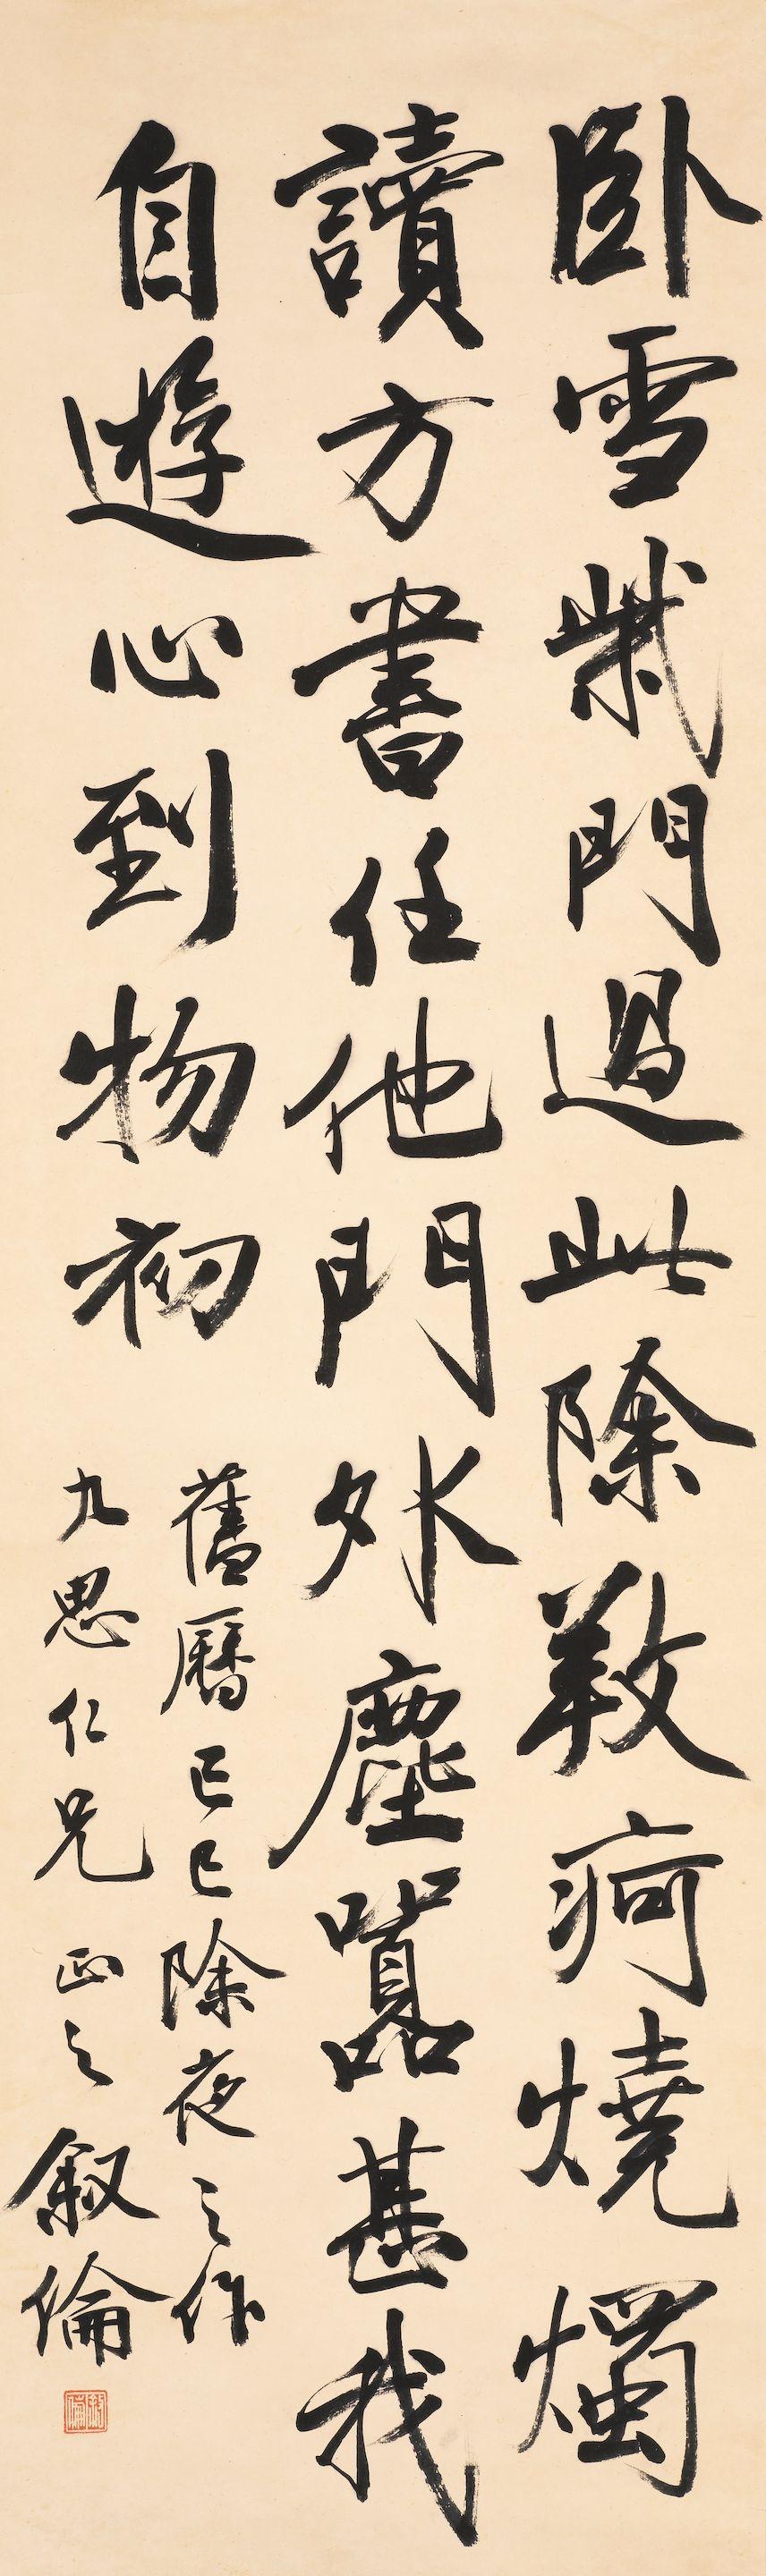 臥雪柴門過此除敎疴燒燭
讀方書任他門外塵囂甚我
自遊心到物初
舊曆己巳除夜之作
九思仁兄正之叙倫